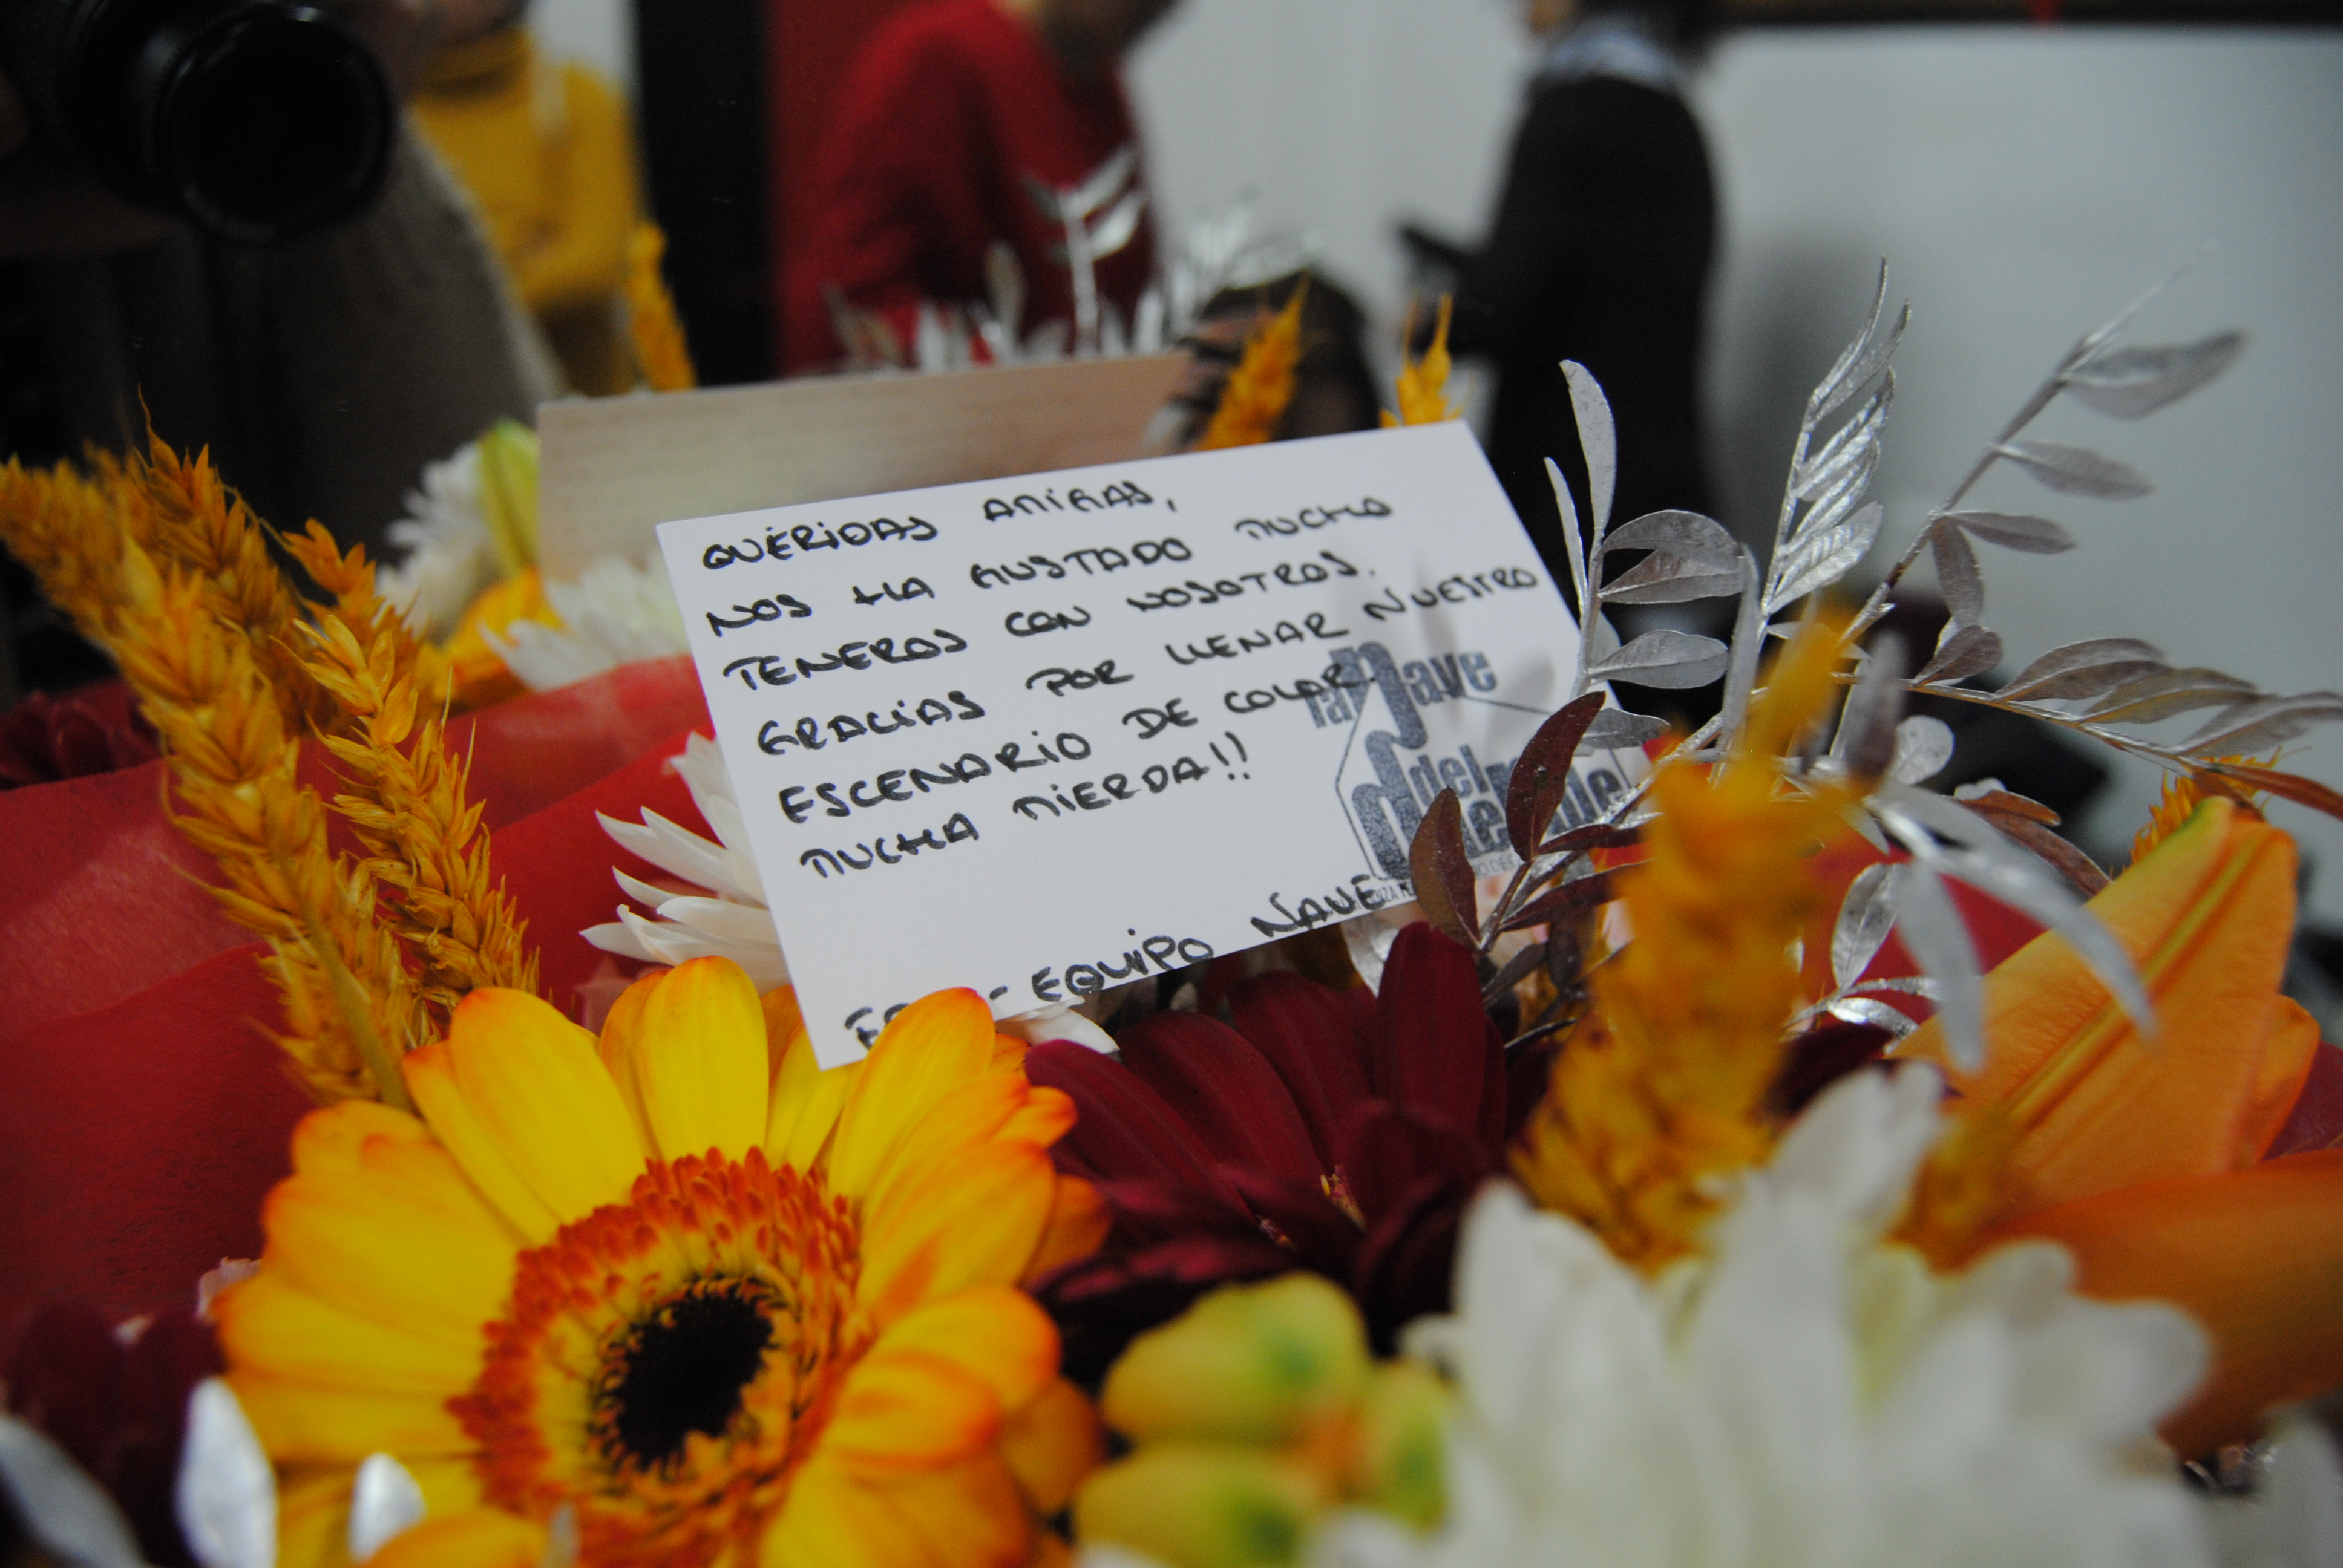 QUERIDAS AMIGAS,
NOS HA GUSTADO MUCHO
TENEROS CON NOSOTROS.
GRACIAS POR LLENAR NUESTRO
ESCENARIO DE COLOR.
MUCHA MIERDA!!
- EQUIPO NAVE
la nave
del